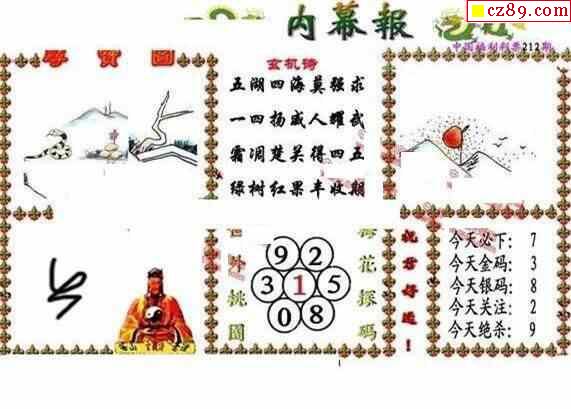 cz89.com
内幕報
中国福利彩票212期
寻宝圖
玄机诗
五湖四海莫强求
一四扬威人耀武
霜凋楚关得四五
绿树红果丰收期
世外桃園
9 2
3 1 5
0 8
梅花探碼
祝君好运！
今天必下：7
今天金码：3
今天银码：8
今天关注：2
今天绝杀：9